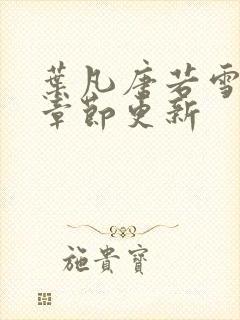 葉凡唐若雪
章節更新
施貴寶